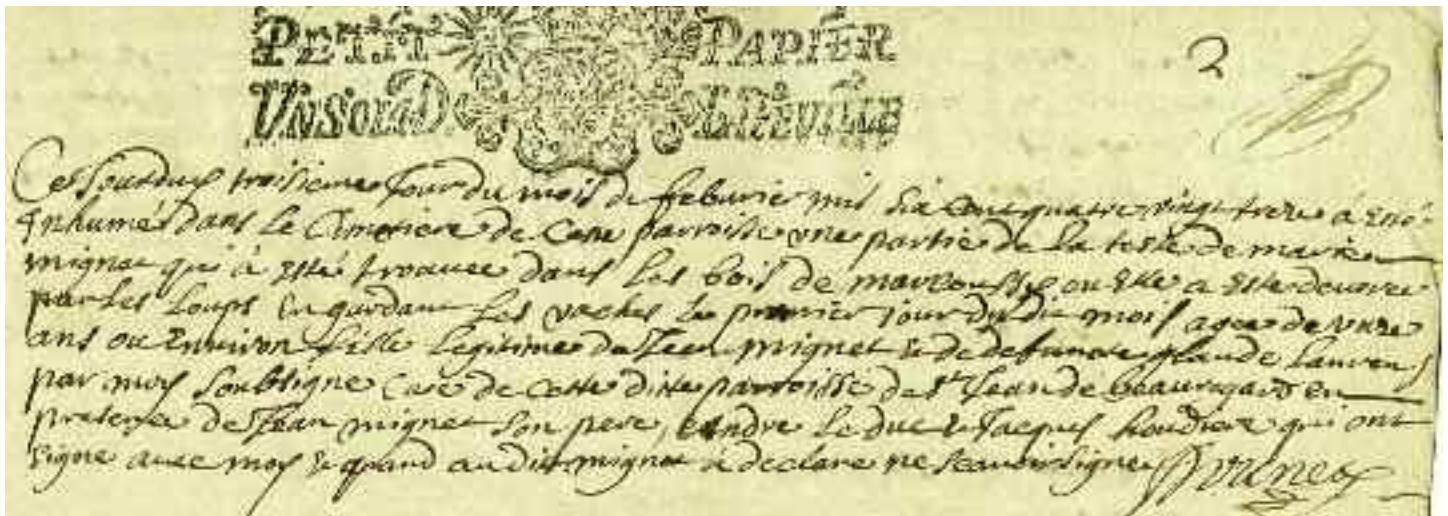 PETIT PAPIER
UN SOL D LA FEUILLE
2
Cejourdhuy troisieme Jour du mois de februrier mil six cent quatre vingt treze a esté
Inhumé dans le Cimetiere de Cette parroisse une partie de la teste de marie
mignet qui à esté trouuee dans les bois de marcoussy ou Elle a este deuoree
par les loups En gardant les vaches le premier jour dudit mois agee de unze
ans ou Enuiron fille Legitime de Jean mignet & de defuncte glaude Laurens
par moy soubsigne Curé de Cette ditte parroisse de St Jean de beauregard en
presence de Jean mignet son pere, andre le duc & Jacques houdier qui ont
signe auec moy & quand audit mignet à declaré ne scauoir signer